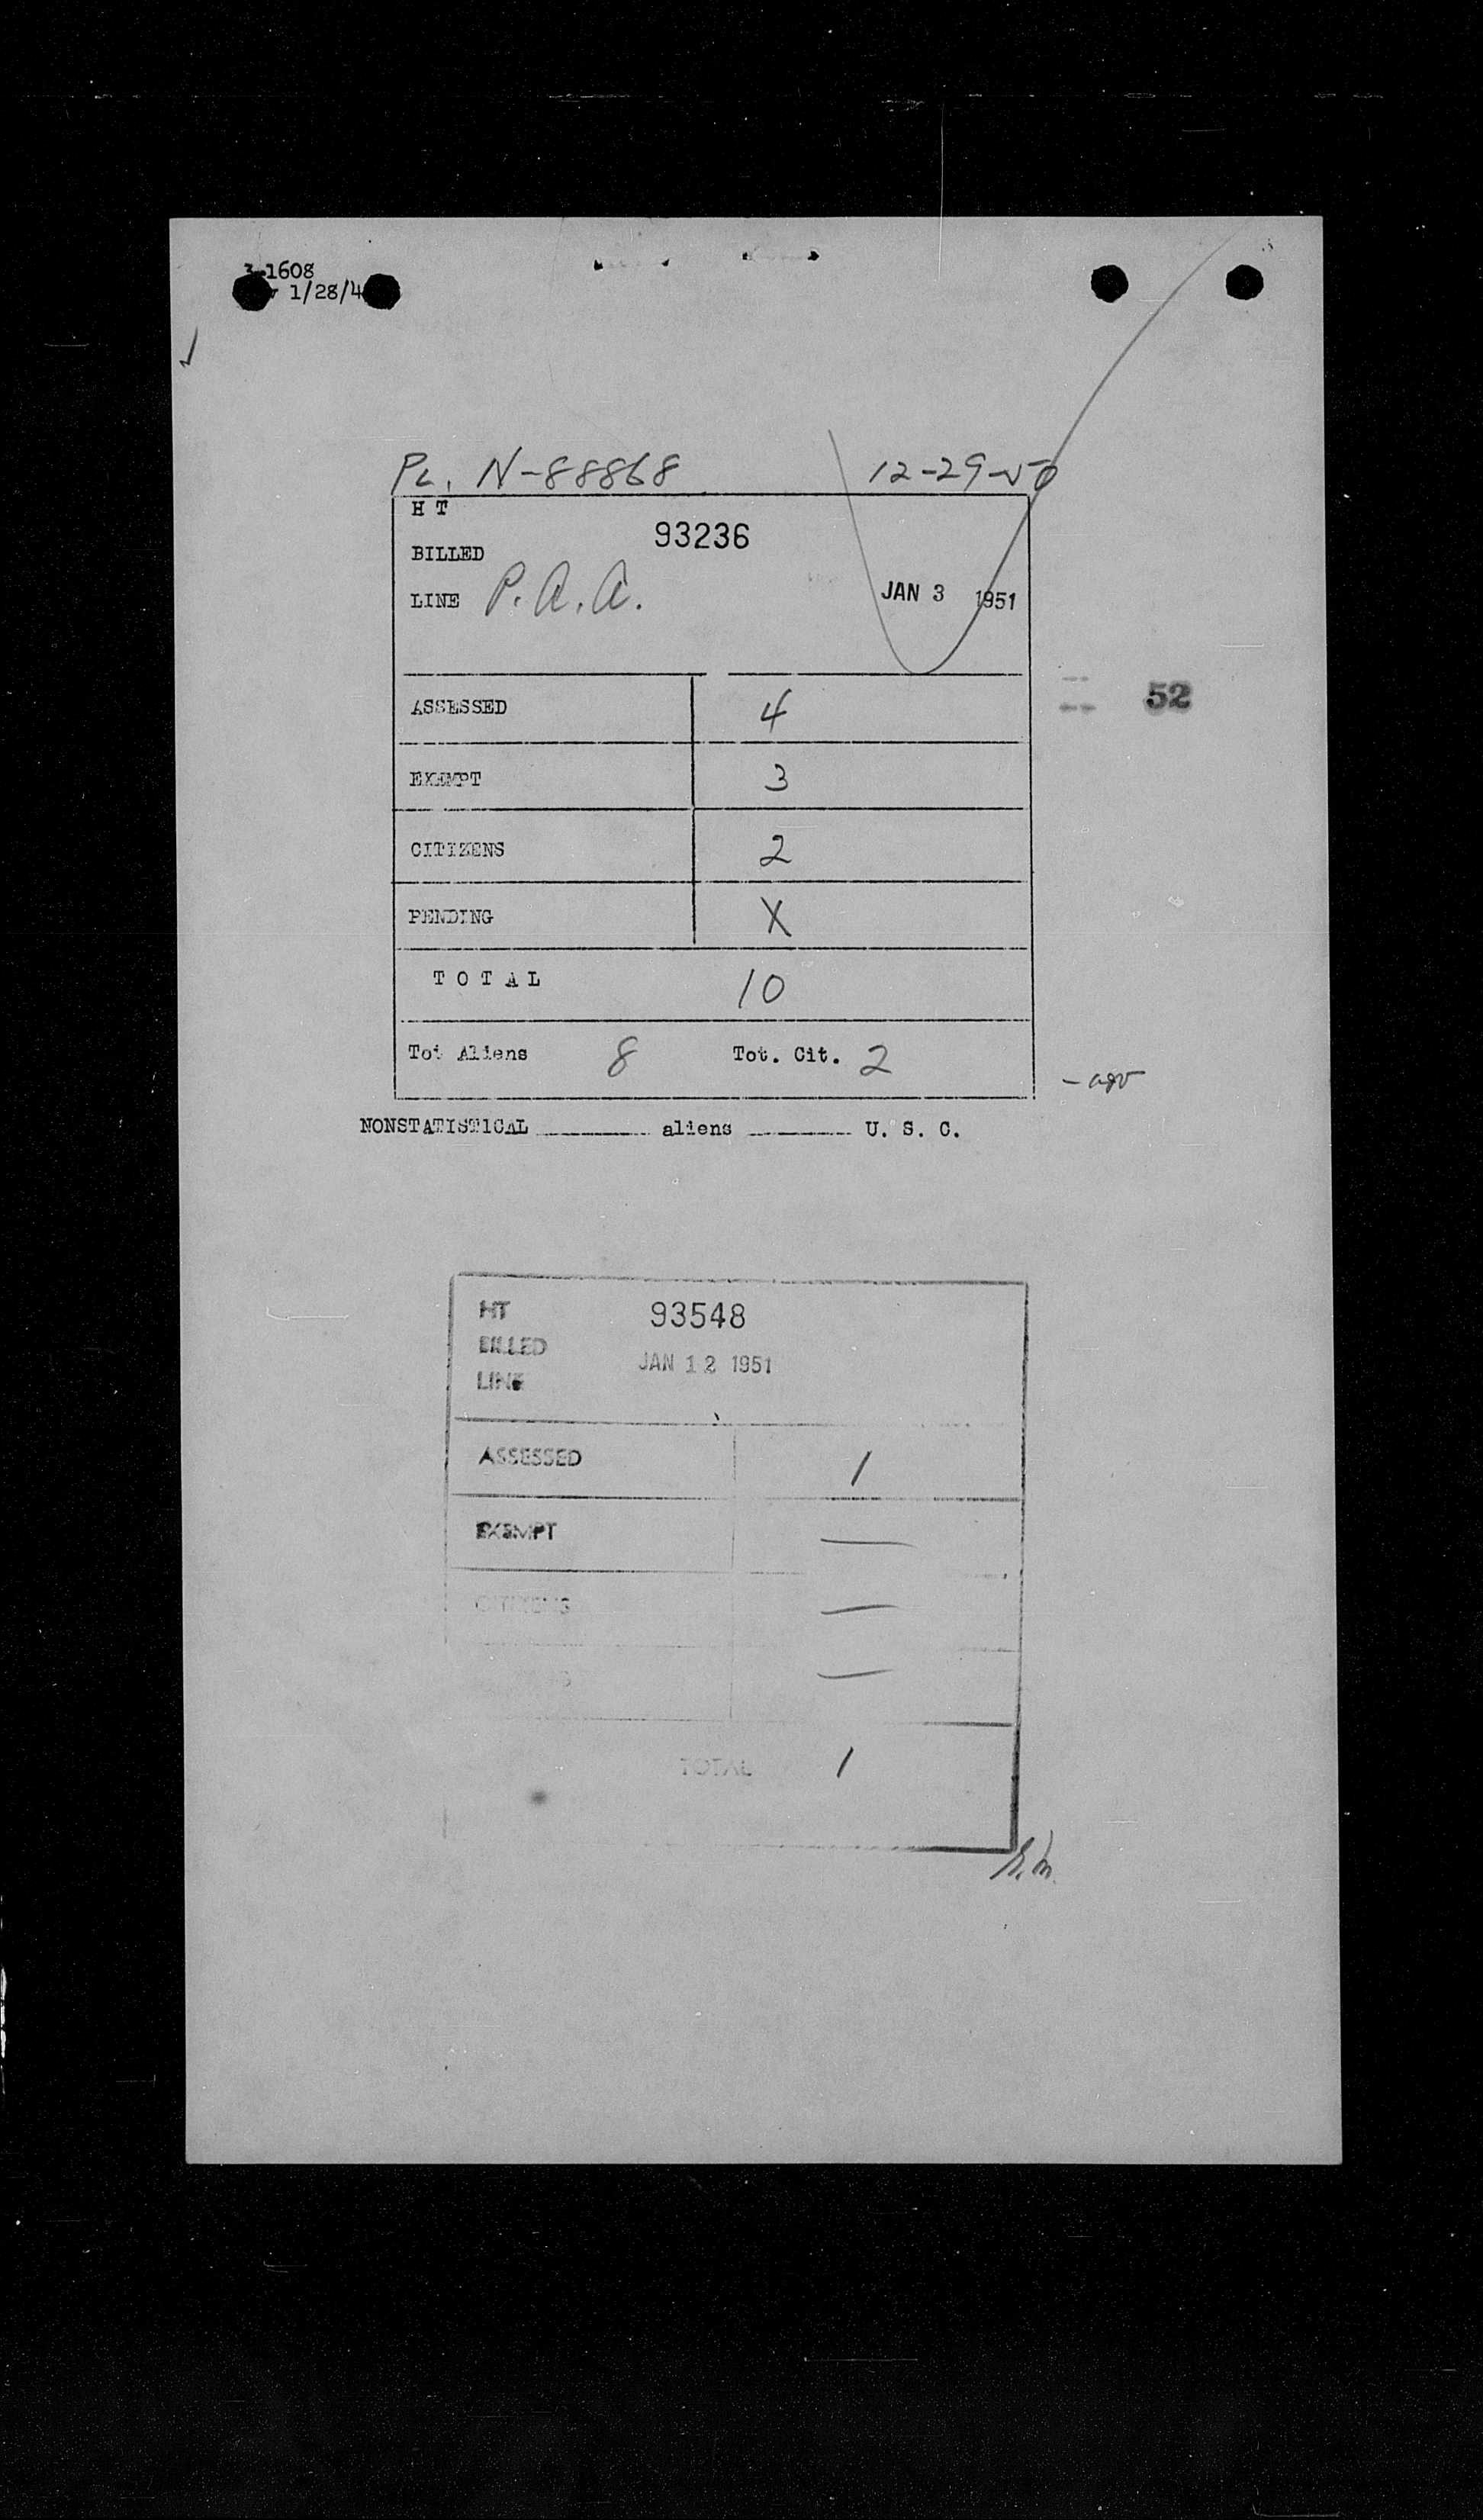 3-1608
1/28/4
Pl. N-88868 12-29-50
H T
93236
BILLED
LINE P.A.A. JAN 3 1951
52
ASSESSED 4
EXEMPT 3
CITIZENS 2
PENDING X
T O T A L 10
Tot Aliens 8 Tot. Cit. 2
NONSTATISTICAL aliens U. S. C.
HT 93548
BILLED
JAN 12 1951
LINE
ASSESSED 1
EXEMPT —
CITIZENS —
—
TOTAL 1